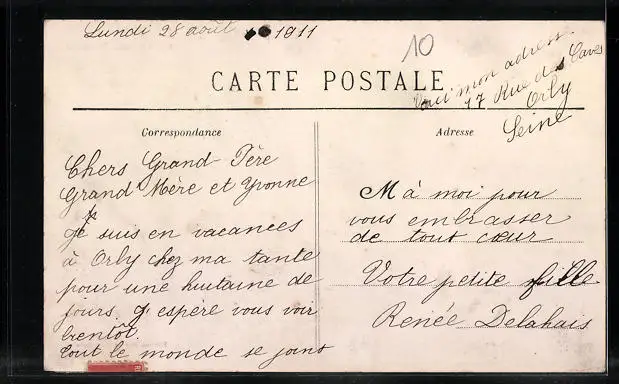 Lundi 28 août 1911
10
CARTE POSTALE
Voici mon adresse
17 Rue des Caves
Orly
Seine
Correspondance
Chers Grand-Père
Grand Mère et Yvonne
Je suis en vacances
à Orly chez ma tante
pour une huitaine de
jours. J'espère vous voir
bientôt.
tout le monde se joint
Adresse
M à moi pour
vous embrasser
de tout cœur
Votre petite fille
Renée Delahais